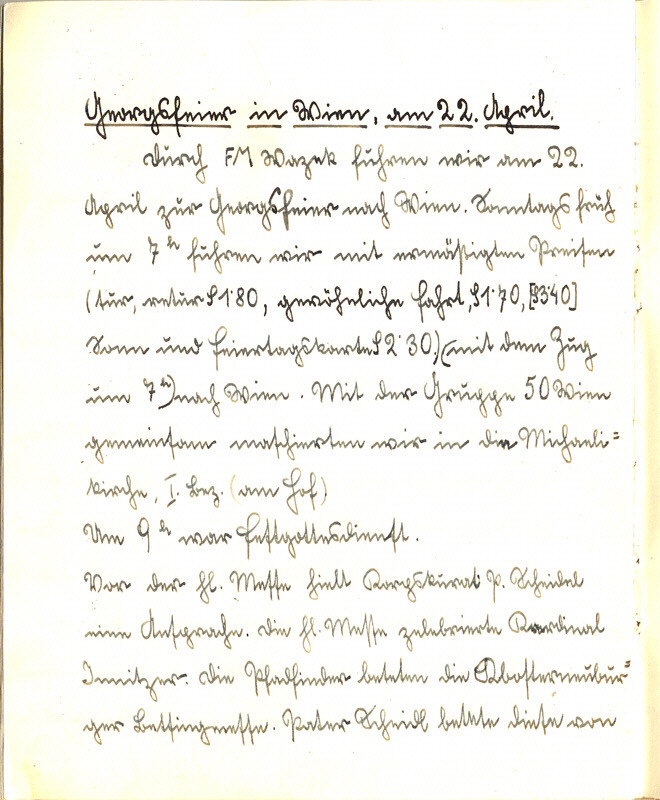 Georgsfeier in Wien, am 22. April.
Durch FM Wazek fuhren wir am 22.
April zur Georgsfeier nach Wien. Sonntags früh
um 7h fuhren wir mit ermäßigten Preisen
(tur, retur S 1·80, gewöhnliche Fahrt, S 1·70, [S 3·40]
Sonn und Feiertagskarte S 2·30,) (mit dem Zug
um 7h) nach Wien. Mit der Gruppe 50 Wien
gemeinsam maschierten wir in die Michaeli=
kirche, I. Bez. (am Hof)
Um 9h war Festgottesdienst.
Vor der hl. Messe hielt Korpskurat P. Scheidel
eine Ansprache. Die hl. Messe zelebrierte Kardinal
Innitzer. Die Pfadfinder beteten die Klosterneubur=
ger Betsingmesse. Pater Scheidl betete diese von